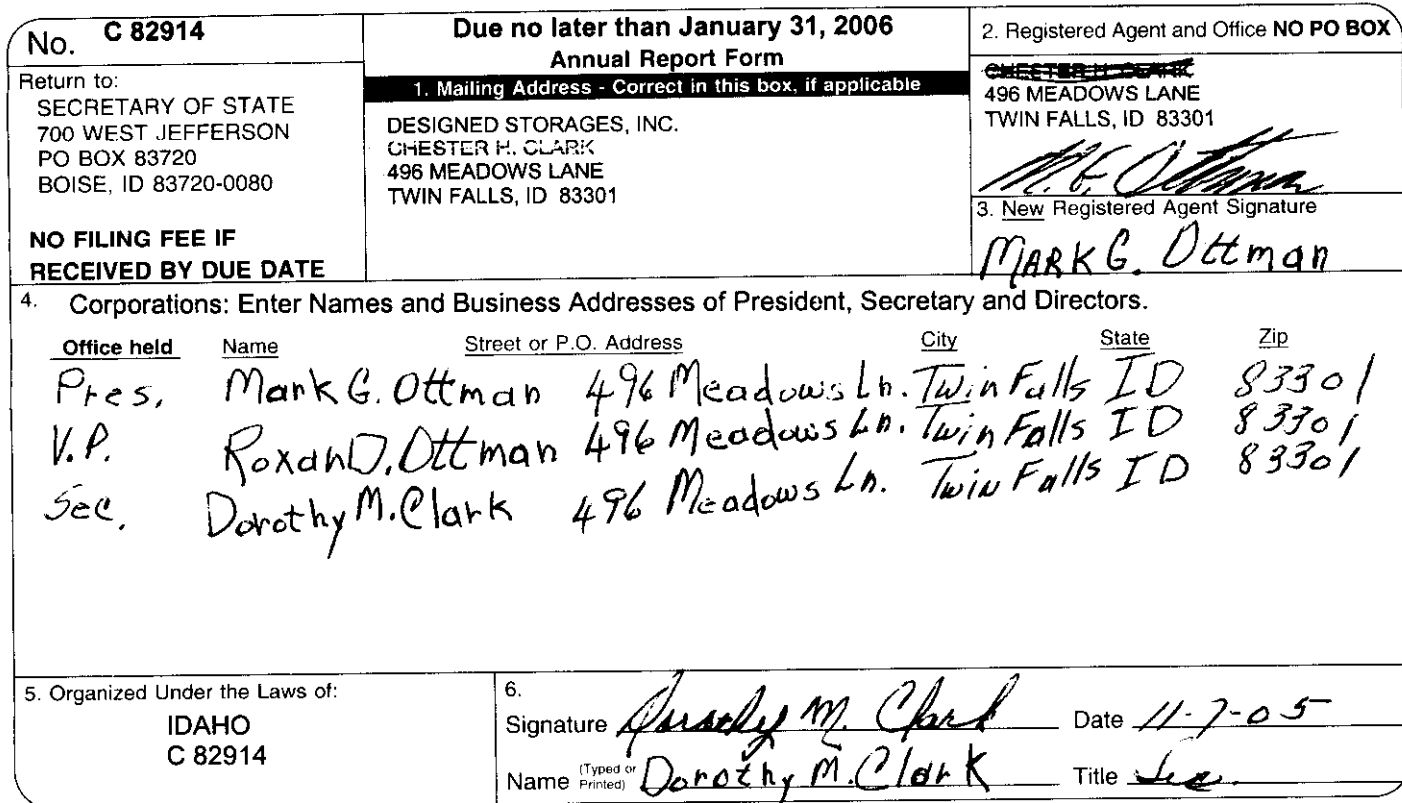 No. C 82914
Return to:
SECRETARY OF STATE
700 WEST JEFFERSON
PO BOX 83720
BOISE, ID 83720-0080
NO FILING FEE IF
RECEIVED BY DUE DATE
Due no later than January 31, 2006
Annual Report Form
1. Mailing Address - Correct in this box, if applicable
DESIGNED STORAGES, INC.
CHESTER H. CLARK
496 MEADOWS LANE
TWIN FALLS, ID 83301
2. Registered Agent and Office NO PO BOX
CHESTER H CLARK
496 MEADOWS LANE
TWIN FALLS, ID 83301
M. G. Ottman
3. New Registered Agent Signature
MARK G. Ottman
4. Corporations: Enter Names and Business Addresses of President, Secretary and Directors.
Office held Name Street or P.O. Address City State Zip
Pres. Mark G. Ottman 496 Meadows Ln. Twin Falls ID 83301
V.P. Roxan D. Ottman 496 Meadows Ln. Twin Falls ID 83301
Sec. Dorothy M. Clark 496 Meadows Ln. Twin Falls ID 83301
5. Organized Under the Laws of:
IDAHO
C 82914
6.
Signature Dorothy M. Clark Date 11-7-05
Name (Typed or Printed) Dorothy M. Clark Title Sec.